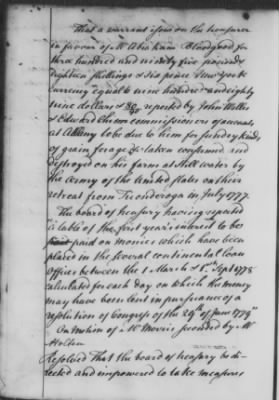 That a warrant issue on the treasurer
in favour of Mr Abraham Bloodgood for
three hundred and ninety five pounds
eighteen shillings & six pence New York
currency equal to nine hundred and eighty
nine dollars & reported by John Welles
& Edward Chinn commissioners of accounts
at Albany to be due to him for sundry kinds
of grain forage &c taken consumed and
destroyed on his farm at Still water by
the army of the United States on their
retreat from Ticonderoga in July 1777.
The board of treasury having reported
"a table of the first year's interest to be
paid on monies which have been
placed in the several continental loan
offices between the 1 March & 1st Sept 1778
calculated for each day on which the money
may have been lent in pursuance of a
resolution of Congress of the 29th of June 1779"
On motion of Mr Morris seconded by Mr
Holten
Resolved That the board of treasury be di-
rected and impowered to take measures